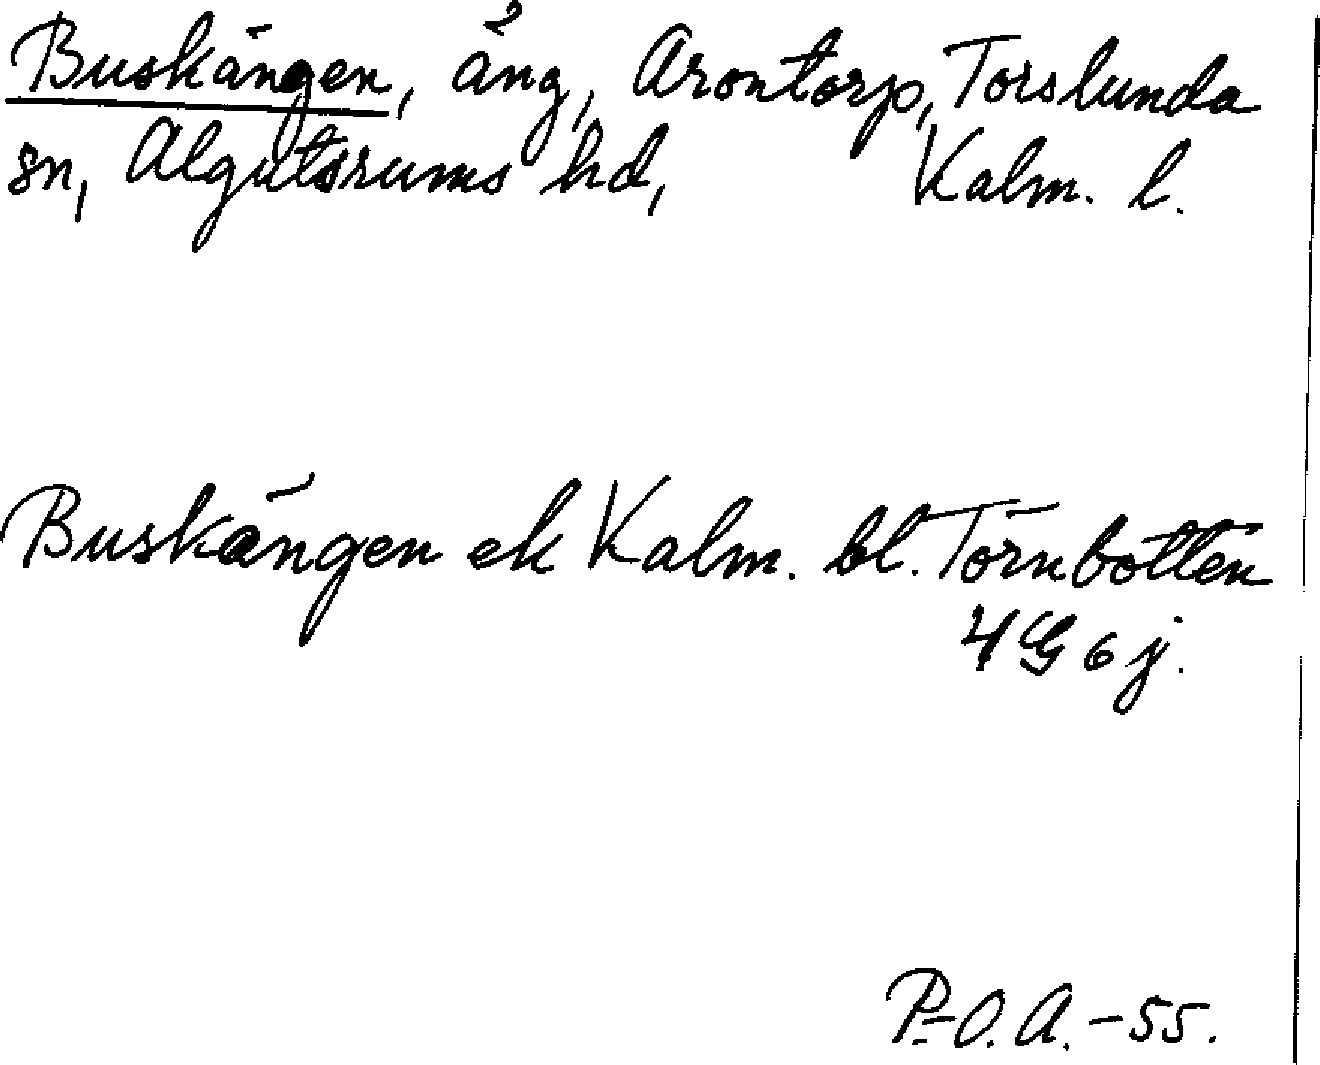 Buskängen, äng, Arontorp, Torslunda
sn, Algutsrums hd, Kalm. l.
Buskängen ek Kalm. bl. Törnbotten
4G6j.
P.-O. A. -55.